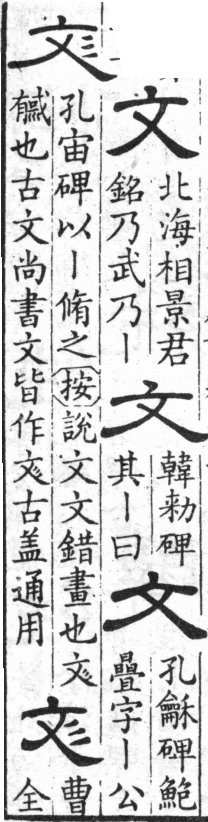 文
北海相景君
銘乃武乃丨
文
韓勑碑
其丨曰
文
孔龢碑鮑
疊字丨公
彣
孔宙碑以丨脩之按說文文錯畫也彣
也古文尚書文皆作彣古盖通用
彣
曹
全